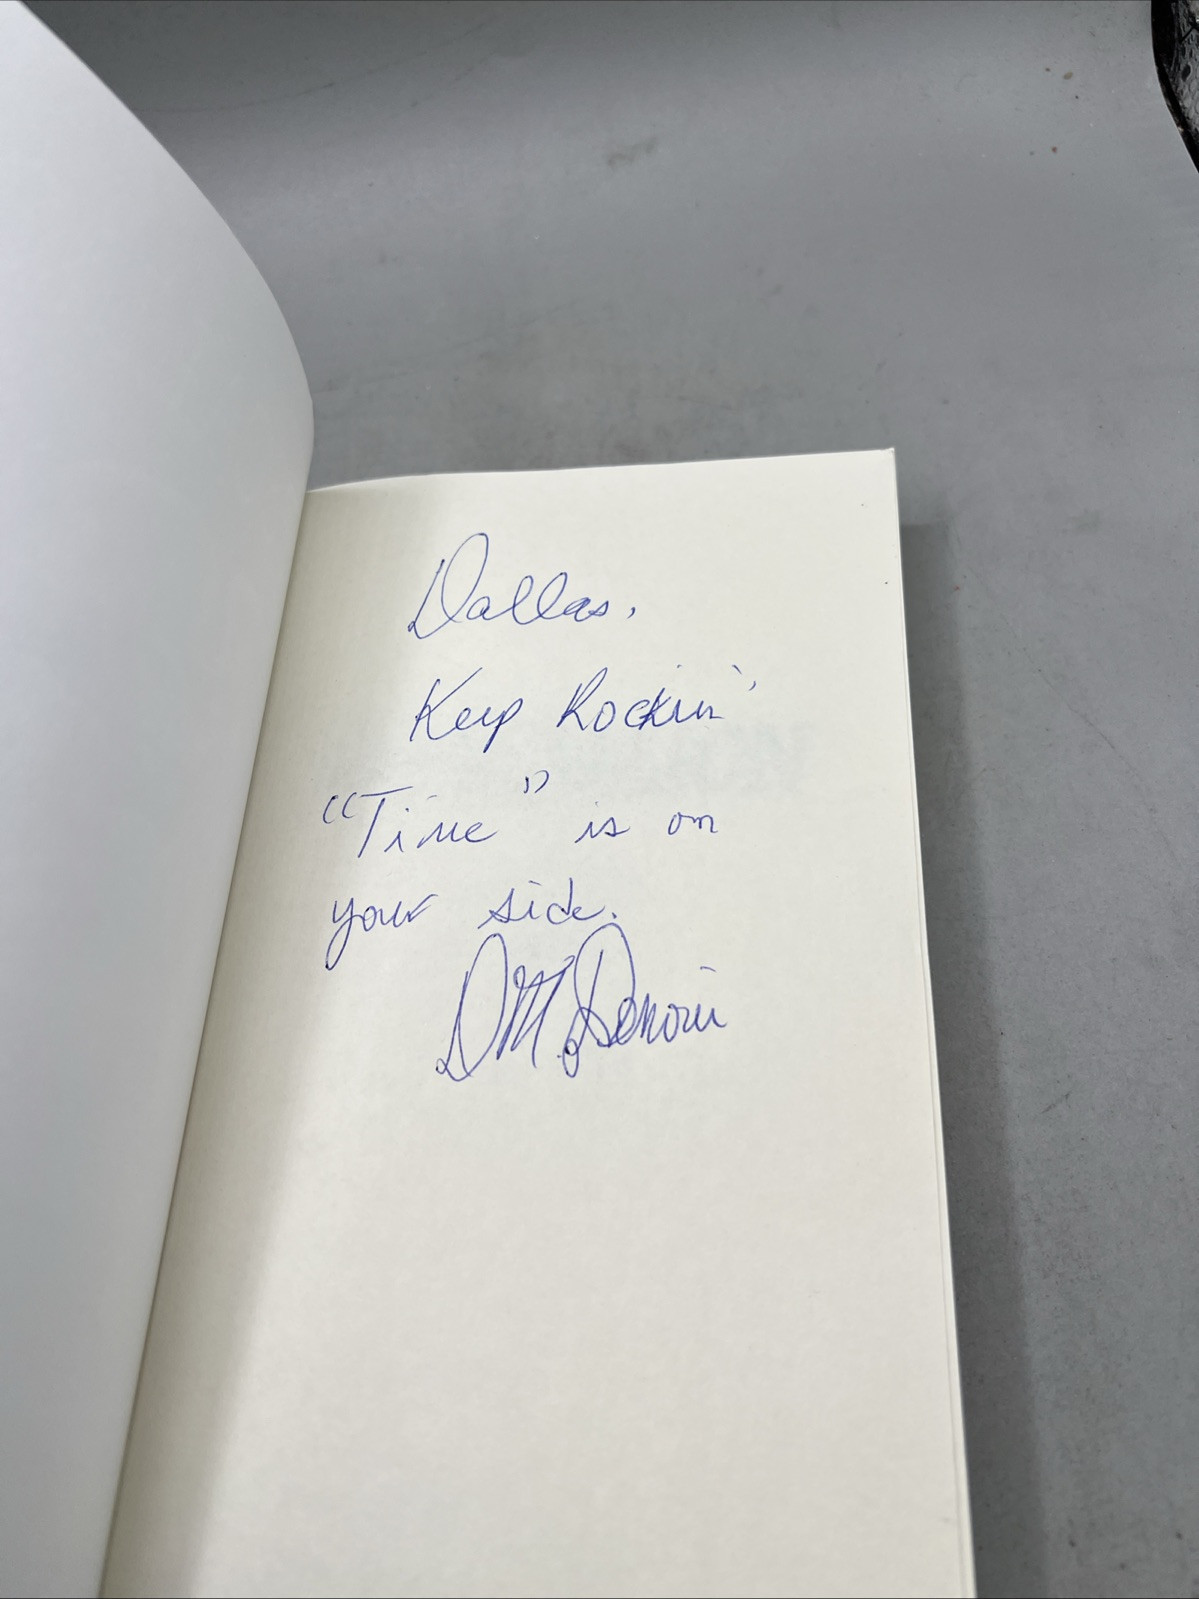 Dallas,
Keep Rockin'
"Time" is on
your side.